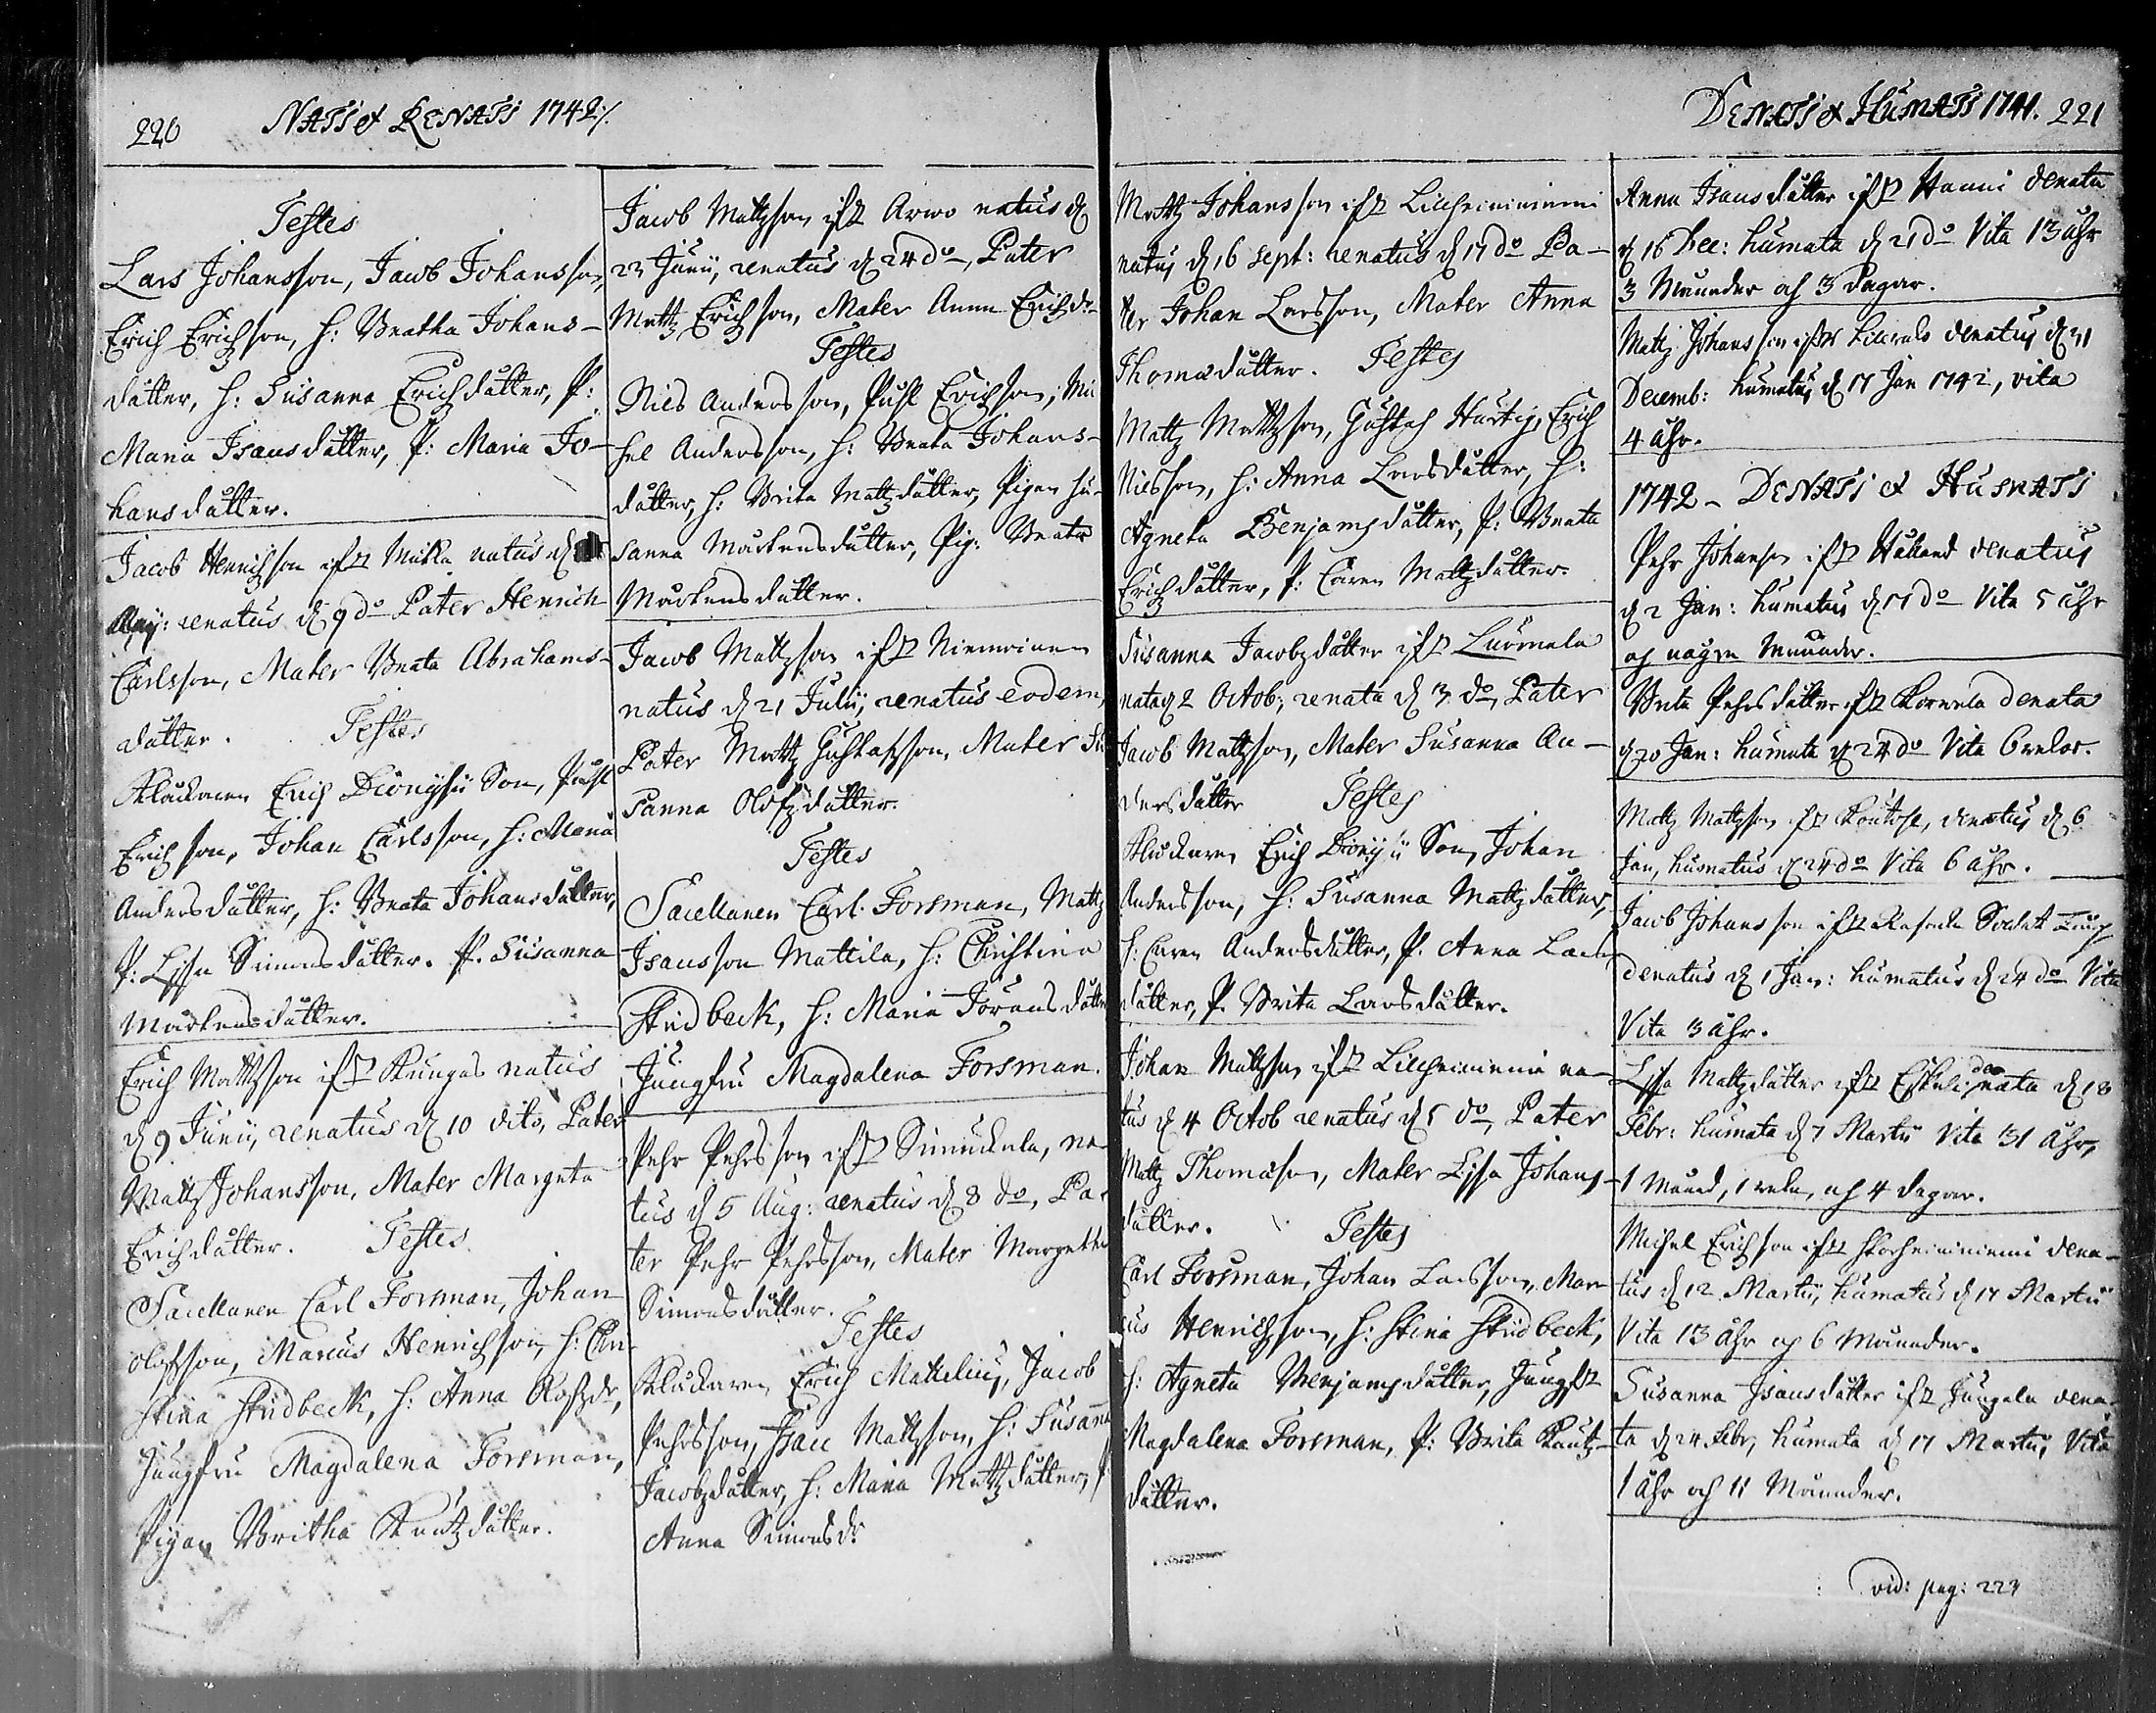 220 NATI & RENATI 1742 ./.
Testes
Lars Johansson, Jacob Johansson,
Erich Erichson, H: Beatha Johans-
dåtter, H: Susanna Erichdåtter, P:
Maria Isansdåtter, P: Maria Jo-
hansdåtter.
Jacob Henrichson ifr natus d
Maij: renatus d 9 do Pater Henrich
Carlsson, Mater Beata Abrahams-
dåtter. Testes
Klåckaren Erich Dionysii Son, Påhl
Erichson, Johan Carlsson, H: Maria
Andersdåtter, H: Beata Johansdåtter,
P: Lisa Simonsdåtter. P. Susanna
Mårtensdåtter.
Erich Mattzson ifr Kungas natus
d 9 Junii, renatus d 10 dito, Pater
Mattz Johansson, Mater Margeta
Erichdåtter. Testes
Sacellanen Carl Forsman, Johan
Olofsson, Marcus Henrichson, H: Chri-
stina Stridbeck, H: Anna Olofzdr,
Jungfru Magdalena Forsman,
Pigan Britha Knutzdåtter.
Jacob Mattzson ifr Arwo natus d
23 Junii, renatus d 24 do, Pater
Mattz Erichson, Mater Anna Erichdr
Testes
Nils Andersson, Påhl Erichson, Mi-
hel Andersson, H: Beata Johans-
dåtter, H: Brita Mattzdåtter, Pigan Su-
sanna Mårtensdåtter, Pig: Beata
Mårtensdåtter.
Jacob Mattzson ifr Niemoinen
natus d 21 Julii, renatus eodem,
Pater Mattz Gustafsson, Mater Su-
sanna Olofzdåtter.
Testes
Sacellanen Carl Forsman, Mattz
Isansson Mattila, H: Christina
Stridbeck, H: Maria Jöransdåtter
Jungfru Magdalena Forsman.
Pehr Pehrsson ifr Simuckala, na-
tus d 5 Aug: renatus d 8 do, Pa-
ter Pehr Pehrsson, Mater Margetha
Simonsdåtter.
Testes
Klåckaren Erich Mattelius, Jacob
Pehrsson, Isac Mattzson, H: Susanna
Jacobzdåtter, H: Maria Mattzdåtter, P
Anna Simonsdr
DENATI & HUMATI 1741. 221
Mattz Johansson ifr Lillheiniemi
natus d 16 sept: renatus d 17 do Pa-
ter Johan Larsson, Mater Anna
Thomædåtter. Testes
Mattz Mattzson, Gustaf Hurtig, Erich
Nilsson, H: Anna Larsdåtter, H:
Agneta Benjamsdåtter, P: Beata
Erichdåtter, P: Caren Mattzdåtter.
Susanna Jacobzdåtter ifr Luomala
nata d 2 Octob; renata d 3 do, Pater
Jacob Mattzson, Mater Susanna An-
dersdåtter Testes
Klåckaren Erich Dionysii Son, Johan
Andersson, H: Susanna Mattzdåtter,
H: Caren Andersdåtter, P. Anna Lars
dåtter, P. Brita Larsdåtter.
Johan Mattzson ifr Lillheiniemi na-
tus d 4 Octob renatus d 5 do, Pater
Mattz Thomæson, Mater Lisa Johans-
dåtter. Testes
Carl Forsman, Johan Larsson, Mar-
cus Henrichson, H: Stina Stridbeck,
H: Agneta Benjamsdåtter, Jungfr
Magdalena Forsman, P: Brita Knutz-
dåtter.
Anna Isansdåtter ifr Hanni denata
d 16 Dec: humata d 21 do Vita 13 åhr
3 Månader och 3 dagar.
Mattz Johansson ifr denatus d 31
Decemb: humatus d 17 Jan 1742, vita
4 åhr.
1742 - DENATI & HUMATI
Pehr Johanson ifr denatus
d 2 Jan: humatus d 17 do Vita 5 åhr
och någre Månader.
Brita Pehrsdåtter ifr Korvela denata
d 20 Jan: humata d 24 do Vita 6 wekor.
Mattz Mattzson ifr denatus d 6
Jan, humatus d 24 do Vita 6 åhr.
Jacob Johansson ifr Soldat
denatus d 1 Jan: humatus d 24 do Vita
Vita 3 åhr.
Lisa Mattzdåtter ifr Eskeli denata d 18
Febr: humata d 7 Martii Vita 31 åhr,
1 Månad, 1 weka, och 4 dagar.
Michel Erichson ifr Storheiniemi dena-
tus d 12 Martii, humatus d 17 Martii
Vita 13 åhr och 6 Månader.
Susanna Isansdåtter ifr Jungala dena-
ta d 24 Febr, humata d 17 Martii, Vita
1 åhr och 11 Månader.
vid: pag: 223